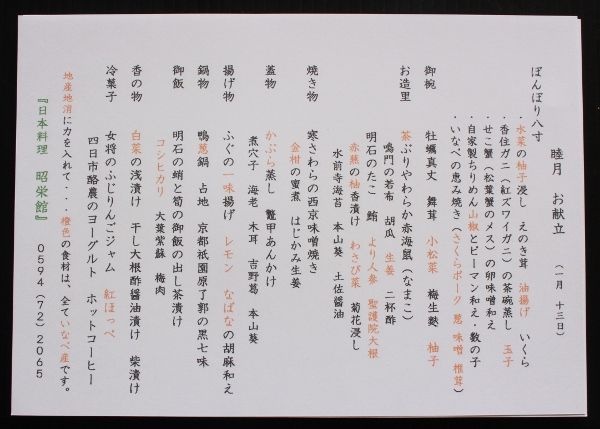 睦月 お献立 (一月 十三日)
ぼんぼり八寸
・水菜の柚子浸し えのき茸 油揚げ いくら
・香住ガニ(紅ズワイガニ)の茶碗蒸し 玉子
・せこ蟹(松葉蟹のメス)の卵味噌和え
・自家製ちりめん山椒とピーマン和え・数の子
・いなべの恵み焼き(さくらポーク 葱 味噌 椎茸)
御椀 牡蠣真丈 舞茸 小松菜 梅生麩 柚子
お造里 茶ぶりやわらか赤海鼠(なまこ)
鳴門の若布 胡瓜 生姜 二杯酢
明石のたこ 鮪 より人参 聖護院大根
赤蕪の柚香漬け わさび菜 菊花浸し
水前寺海苔 本山葵 土佐醤油
焼き物 寒さわらの西京味噌焼き
金柑の蜜煮 はじかみ生姜
蓋物 かぶら蒸し 鼈甲あんかけ
煮穴子 海老 木耳 吉野葛 本山葵
揚げ物 ふぐの一味揚げ レモン なばなの胡麻和え
鍋物 鴨葱鍋 占地 京都祇園原了郭の黒七味
御飯 明石の蛸と筍の御飯の出し茶漬け
コシヒカリ 大葉紫蘇 梅肉
香の物 白菜の浅漬け 干し大根酢醤油漬け 柴漬け
冷菓子 女将のふじりんごジャム 紅ほっぺ
四日市酪農のヨーグルト ホットコーヒー
地産地消に力を入れて・・・橙色の食材は、全ていなべ産です。
『日本料理 昭栄館』 0594(72)2065